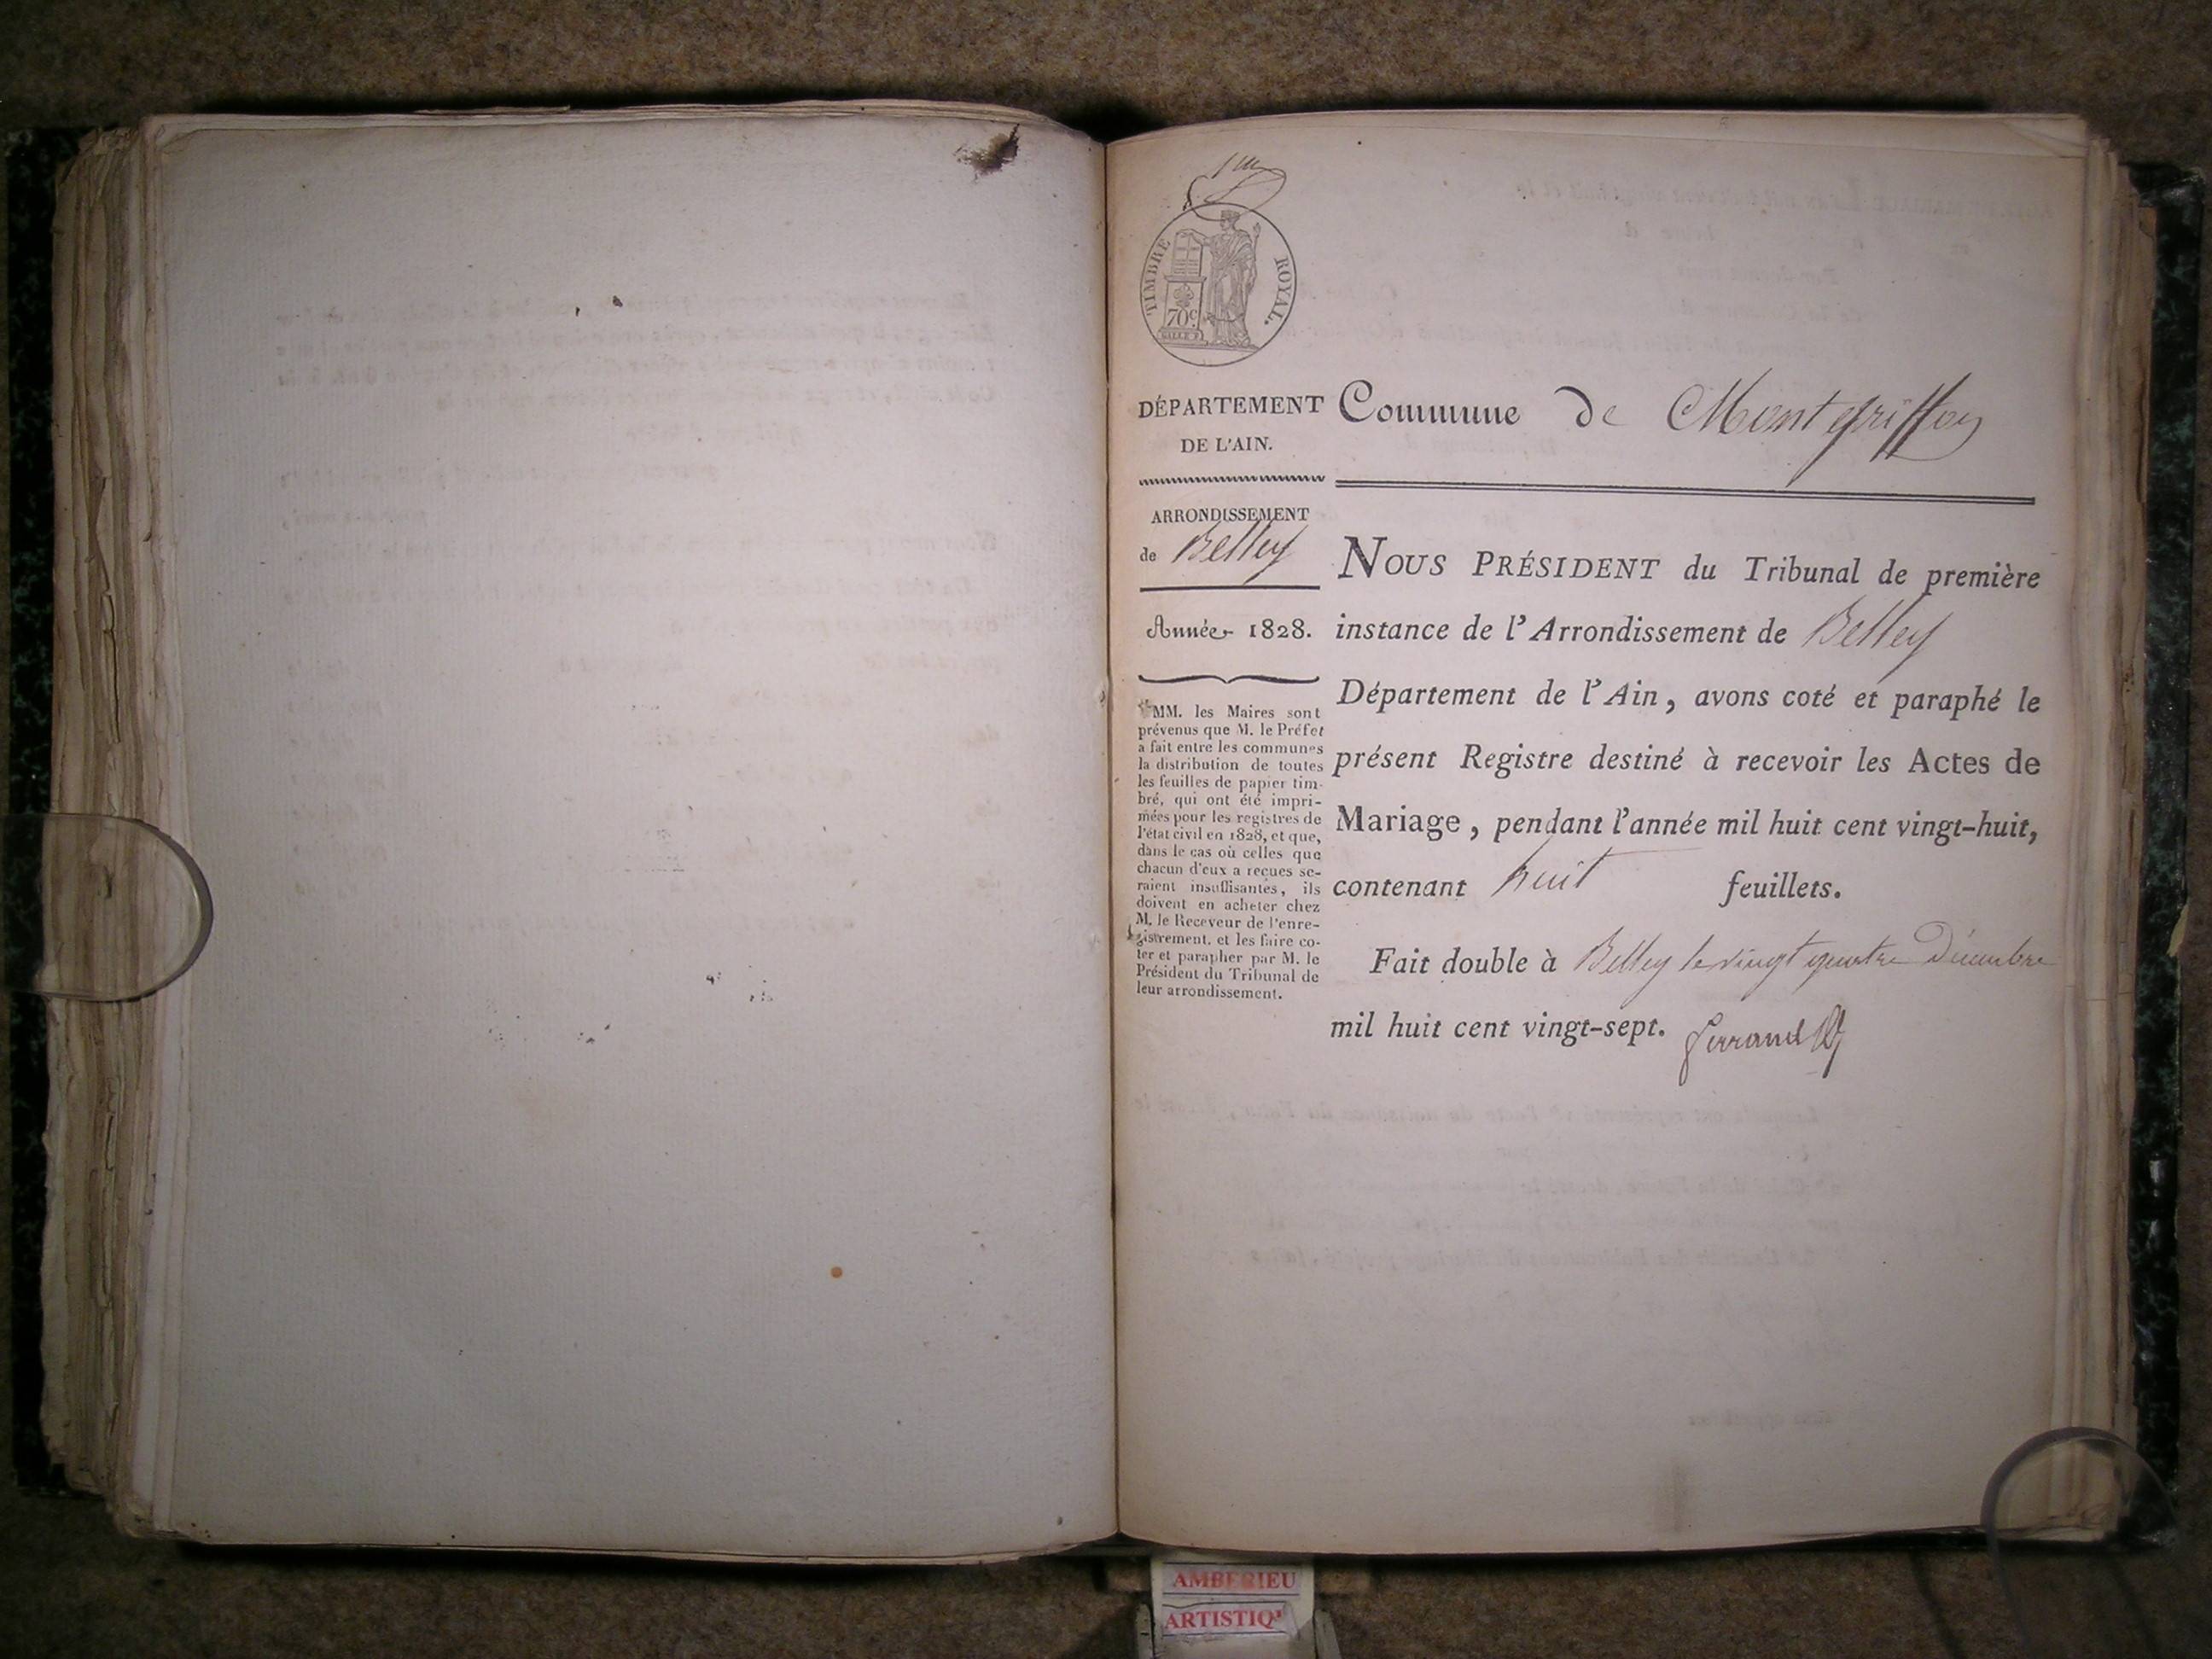 1er
TIMBRE ROYAL.
70c
DÉPARTEMENT
DE L'AIN.
Commune de Montgriffon
ARRONDISSEMENT
de Belley
Année 1828.
MM. les Maires sont
prévenus que M. le Préfet
a fait entre les communes
la distribution de toutes
les feuilles de papier tim-
bré, qui ont été impri-
mées pour les registres de
l'état civil en 1828, et que,
dans le cas où celles que
chacun d'eux a reçues se-
raient insuffisantes, ils
doivent en acheter chez
M. le Receveur de l'enre-
gistrement, et les faire co-
ter et parapher par M. le
Président du Tribunal de
leur arrondissement.
NOUS PRÉSIDENT du Tribunal de première
instance de l'Arrondissement de Belley
Département de l'Ain, avons coté et paraphé le
présent Registre destiné à recevoir les Actes de
Mariage, pendant l'année mil huit cent vingt-huit,
contenant huit feuillets.
Fait double à Belley le vingt quatre Décembre
mil huit cent vingt-sept. Ferrand
AMBERIEU
ARTISTIQ